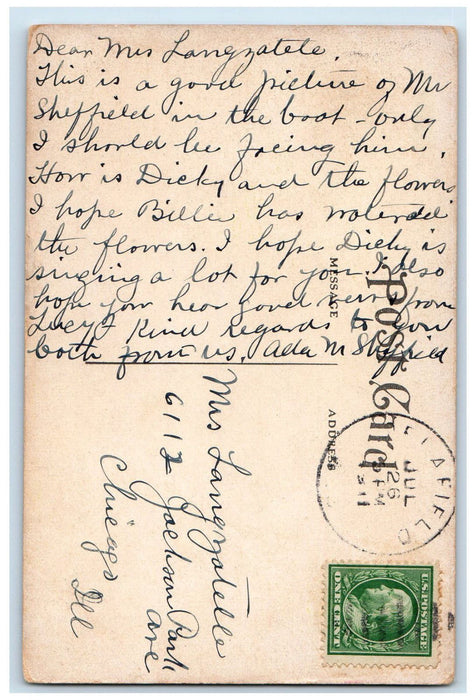 Dear Mrs Langzatele,
This is a good picture of Mr
Sheffield in the boat - only
I should be facing him.
How is Dicky and the flowers
I hope Billie has watered
the flowers. I hope Dicky is
singing a lot for you. I also
hope you hear good news from
Lucy. Kind Regards to you
both from us. Ada M Sheffield
MESSAGE
Post Card
ADDRESS
Mrs Langzatelle
6112 Jackson Park
Ave
Chicago
Ill
LAFIELD
JUL
26
PM
U.S. POSTAGE
ONE CENT